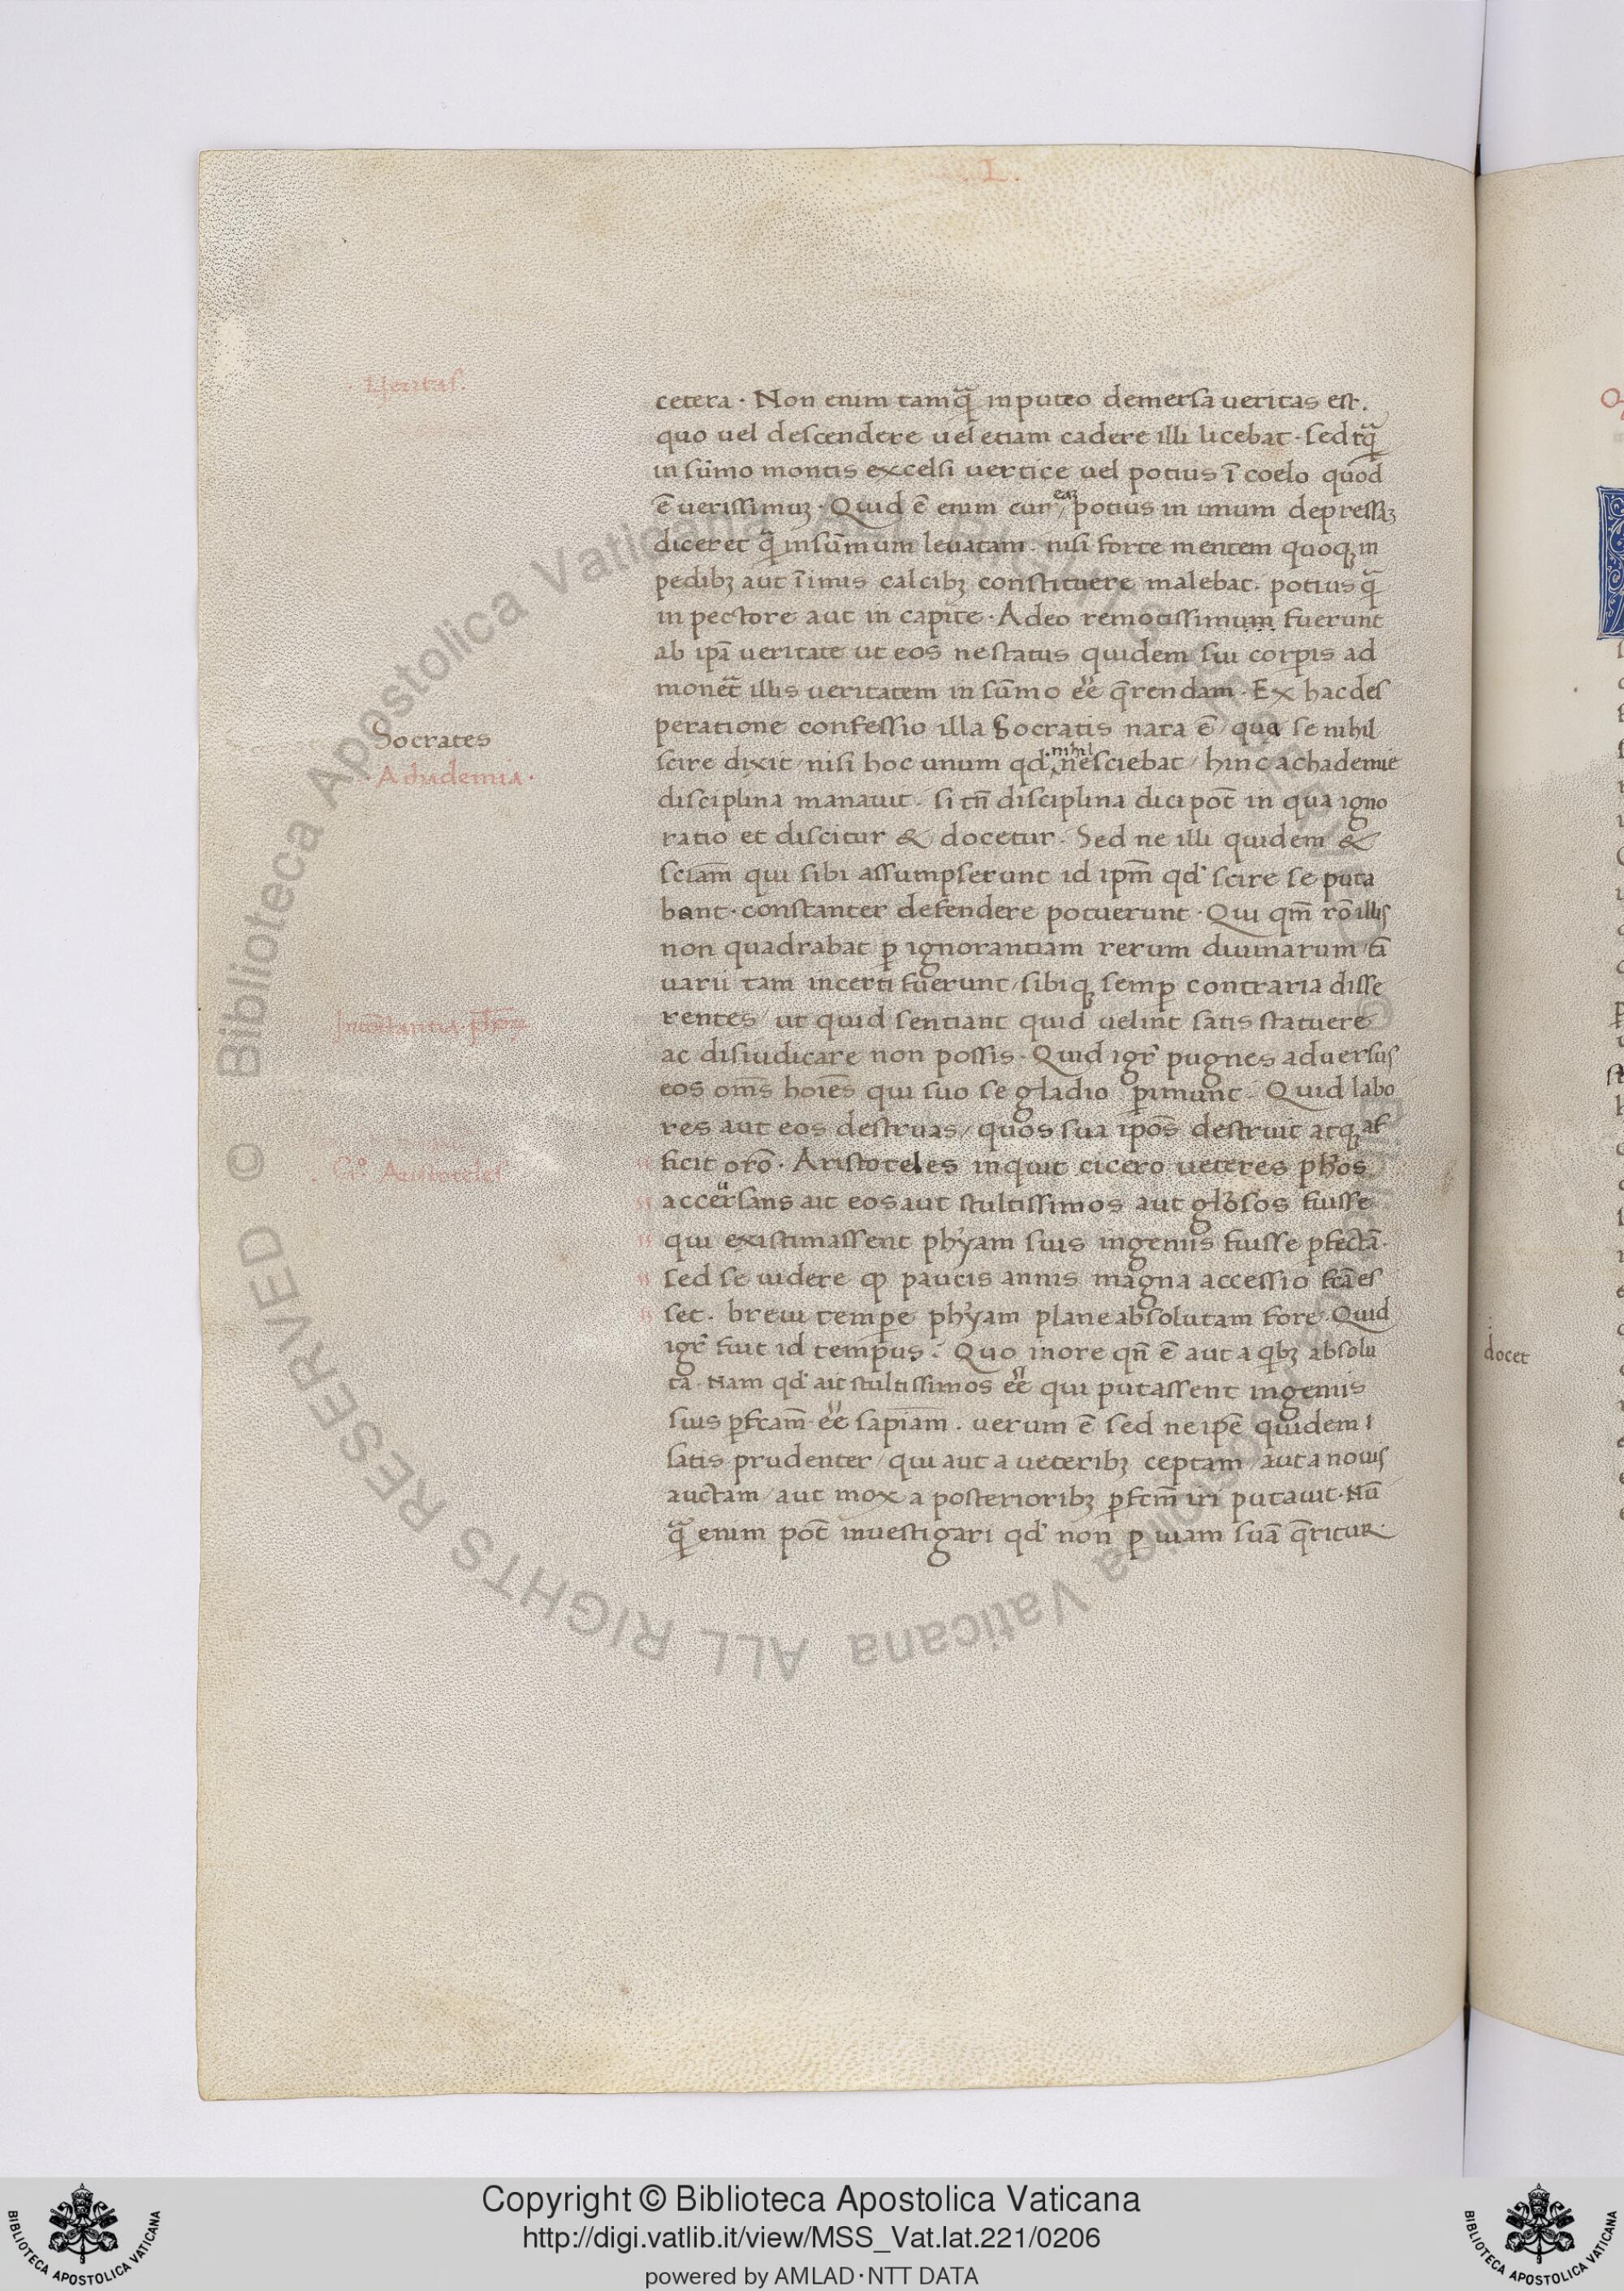 .L.
· Ueritas.
cetera · Non enim tamq̃ in puteo demersa ueritas est.
quo uel descendere uel etiam cadere illi licebat · sed tq̃
in sũmo montis excelsi uertice uel potius ĩ coelo quod
ẽ uerissimuꝫ · Quid ẽ enim cur / eaꝫ potius in imum depressaꝫ
diceret q̃ in sũmum leuatam · nisi forte mentem quoqꝫ in
pedibꝫ aut ĩ imis calcibꝫ constituere malebat · potius q̃
in pectore aut in capite · Adeo remotissimum fuerunt
ab ip̃a ueritate ut eos ne status quidem sui corꝑis ad
monet̃ illis ueritatem in sũmo ẽe q̃rendam · Ex hac des
peratione confessio illa Socratis nata ẽ / qua se nihil
Socrates
scire dixit / nisi hoc unum qd nihil nesciebat / hinc achademie
· Achademia ·
disciplina manauit · si tñ disciplina dici pot̃ in qua igno
ratio et discitur & docetur · Sed ne illi quidem &
sciam̃ qui sibi assumpserunt id ipm̃ qd' scire se puta
bant · constanter defendere potuerunt · Qui qm̃ rõ illis
non quadrabat ꝑ ignorantiam rerum diuinarum / tã
uarii tam incerti fuerunt / sibiqꝫ semꝑ contraria disse
rentes / ut quid sentiant quid uelint satis statuere
Incõstantia
ac disiudicare non possis · Quid igr̃ pugnes aduersus
eos om̃s hoĩes qui suo se gladio ꝑimunt · Quid labo
res aut eos destruas / quos sua ipõs destruit atqꝫ af
ficit orõ · Aristoteles inquit cicero ueteres ph̃os
· C.º Aristoteles
accersans ait eos aut stultissimos aut glõsos fuisse
qui existimassent phỹam suis ingeniis fuisse ꝑfectã ·
sed se uidere ꝙ paucis annis magna accessio fcã es
set · breui tempe phỹam plane absolutam fore · Quid
igr̃ fuit id tempus · Quo more qñ ẽ aut a qibꝫ absolu
ta · Nam qd' ait stultissimos ẽe qui putassent ingeniis
suis ꝑfcam̃ ẽe sapiam̃ · uerum ẽ sed ne ipẽ quidem
satis prudenter / qui aut a ueteribꝫ ceptam / aut a nouis
auctam / aut mox a posterioribꝫ ꝑfctm̃ iri putauit · Nũ
q̃ enim pot̃ inuestigari qd' non ꝑ uiam suã q̃ritur ·
docet
© Biblioteca Apostolica Vaticana ALL RIGHTS RESERVED
Copyright © Biblioteca Apostolica Vaticana
http://digi.vatlib.it/view/MSS_Vat.lat.221/0206
powered by AMLAD·NTT DATA
BIBLIOTECA APOSTOLICA VATICANA
BIBLIOTECA APOSTOLICA VATICANA